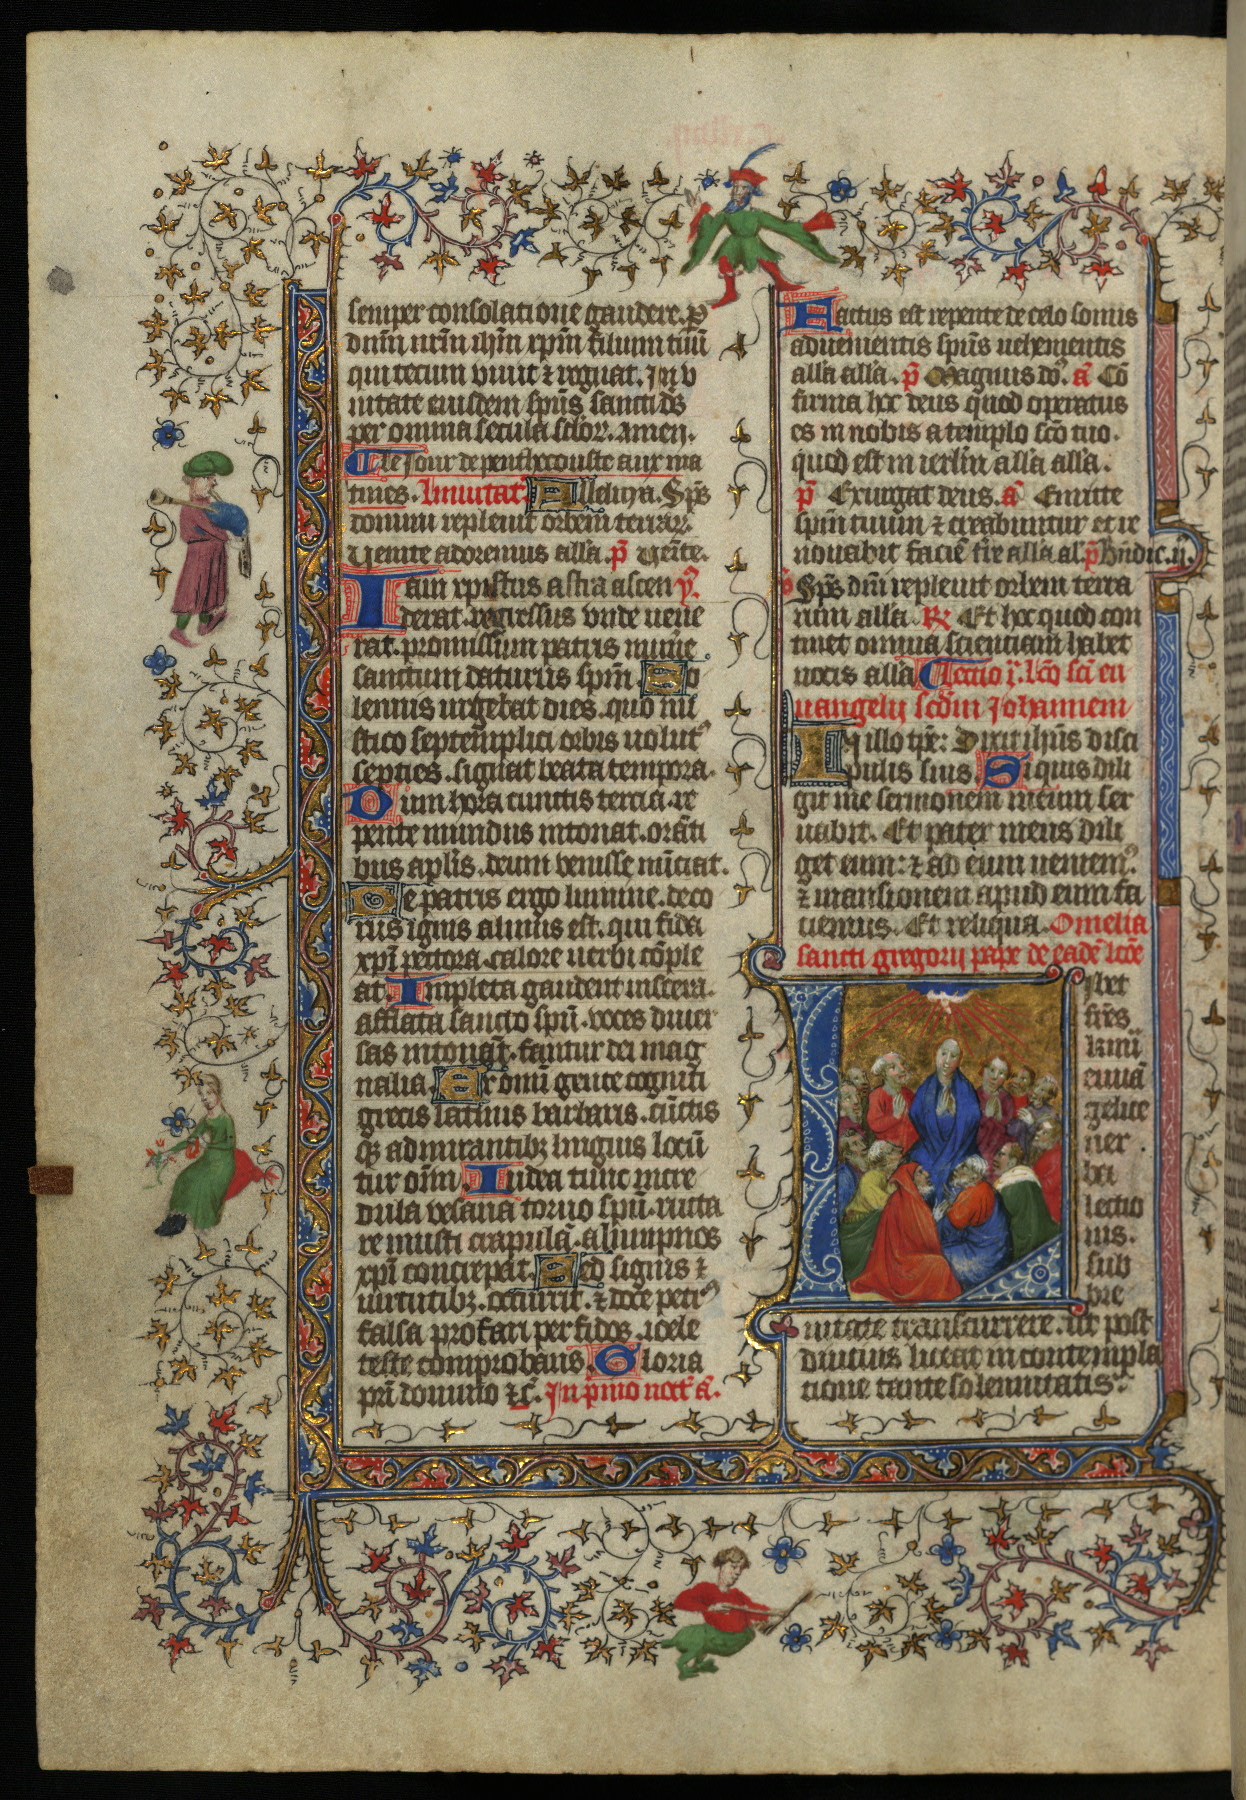 semper consolatione gaudere. p
dnm nrm ihm xpm filium tuu
qui tecum viuit ⁊ regnat. In v
nitate eiusdem spus sancti ds
per omnia secula sclor. amen.
Le jour de penthecouste aux ma
tines. Inuitat. Alleluya. Sps
domini repleuit orbem terrar.
Uenite adoremus alla. p Uenite.
Iam xpistus astra ascen y.
derat. regressus vnde uene
rat. promissum patris mune
sanctum daturus spm. So
lennis urgebat dies. quo mi
stico septemplici orbis uolut
septies. signat beata tempora.
Dum hora cunctis tercia. re
pente mundus intonat. orati
bus aplis. deum venisse nuciat.
De patris ergo lumine. deco
rus ignis almus est. qui fida
xpi pectora. calore uerbi cople
at. Impleta gaudent uiscera.
afflata sancto spu. voces diuer
sas intonat. fantur dei mag
nalia. Ex omni gente cogniti
grecis latinis barbaris. cuctis
q3 admirantib3 linguis locu
tur oim. Iudea tunc incre
dula vesana toruo spu. ructa
re musti crapula. alumpnos
xpi concrepat. Sed signis ⁊
uirtutib3. occurit. ⁊ doce petr
falsa profari perfidos. ioele
teste comprobans. Gloria
pri domino ⁊c. In pmo noct a.
Factus est repente de celo sonus
aduenientis spus uehementis
alla alla. p Magnus do. a Co
firma hoc deus quod operatus
es in nobis a templo sco tuo.
quod est in ierlm alla alla.
p Exurgat deus. a Emitte
spm tuum ⁊ creabuntur et re
nouabit facie tre alla al. p Bndic. ij.
Sps dni repleuit orbem terra
rum alla. R Et hoc quod con
tinet omnia scientiam habet
uocis alla Lectio j. lco sci eu
uangelij scdm Johannem
In illo tpe: Dixit ihus disci
pulis suis. Si quis dili
git me sermonem meum ser
uabit. Et pater meus dili
get eum: ⁊ ad eum ueniem
⁊ mansionem apud eum fa
ciemus. Et reliqua. Omelia
sancti gregorij pape de eade lcoe
Libet
fres
kmi
euua
gelice
uer
ba
lectio
nis.
sub
bre
uitate transcurrere. ut post
diutius liceat in contempla
tione tante solennitatis.